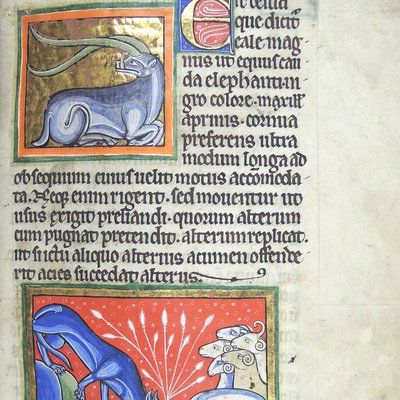 que dicit᷑
eale mag
nus ut equus cau
da elephanti ni
gro colore. maxill'
aprinis. cornua
preferens ultra
modum longa ad
obsequium cuiusuelit motus accomoda
ta. Neq; enim rigent. sed mouentur ut
usus exigit preliandi. quorum alterum
cum pugnat pretendit. alterum replicat.
ut si ictu aliquo alterius acumen offende
rit acies succedat alterius.